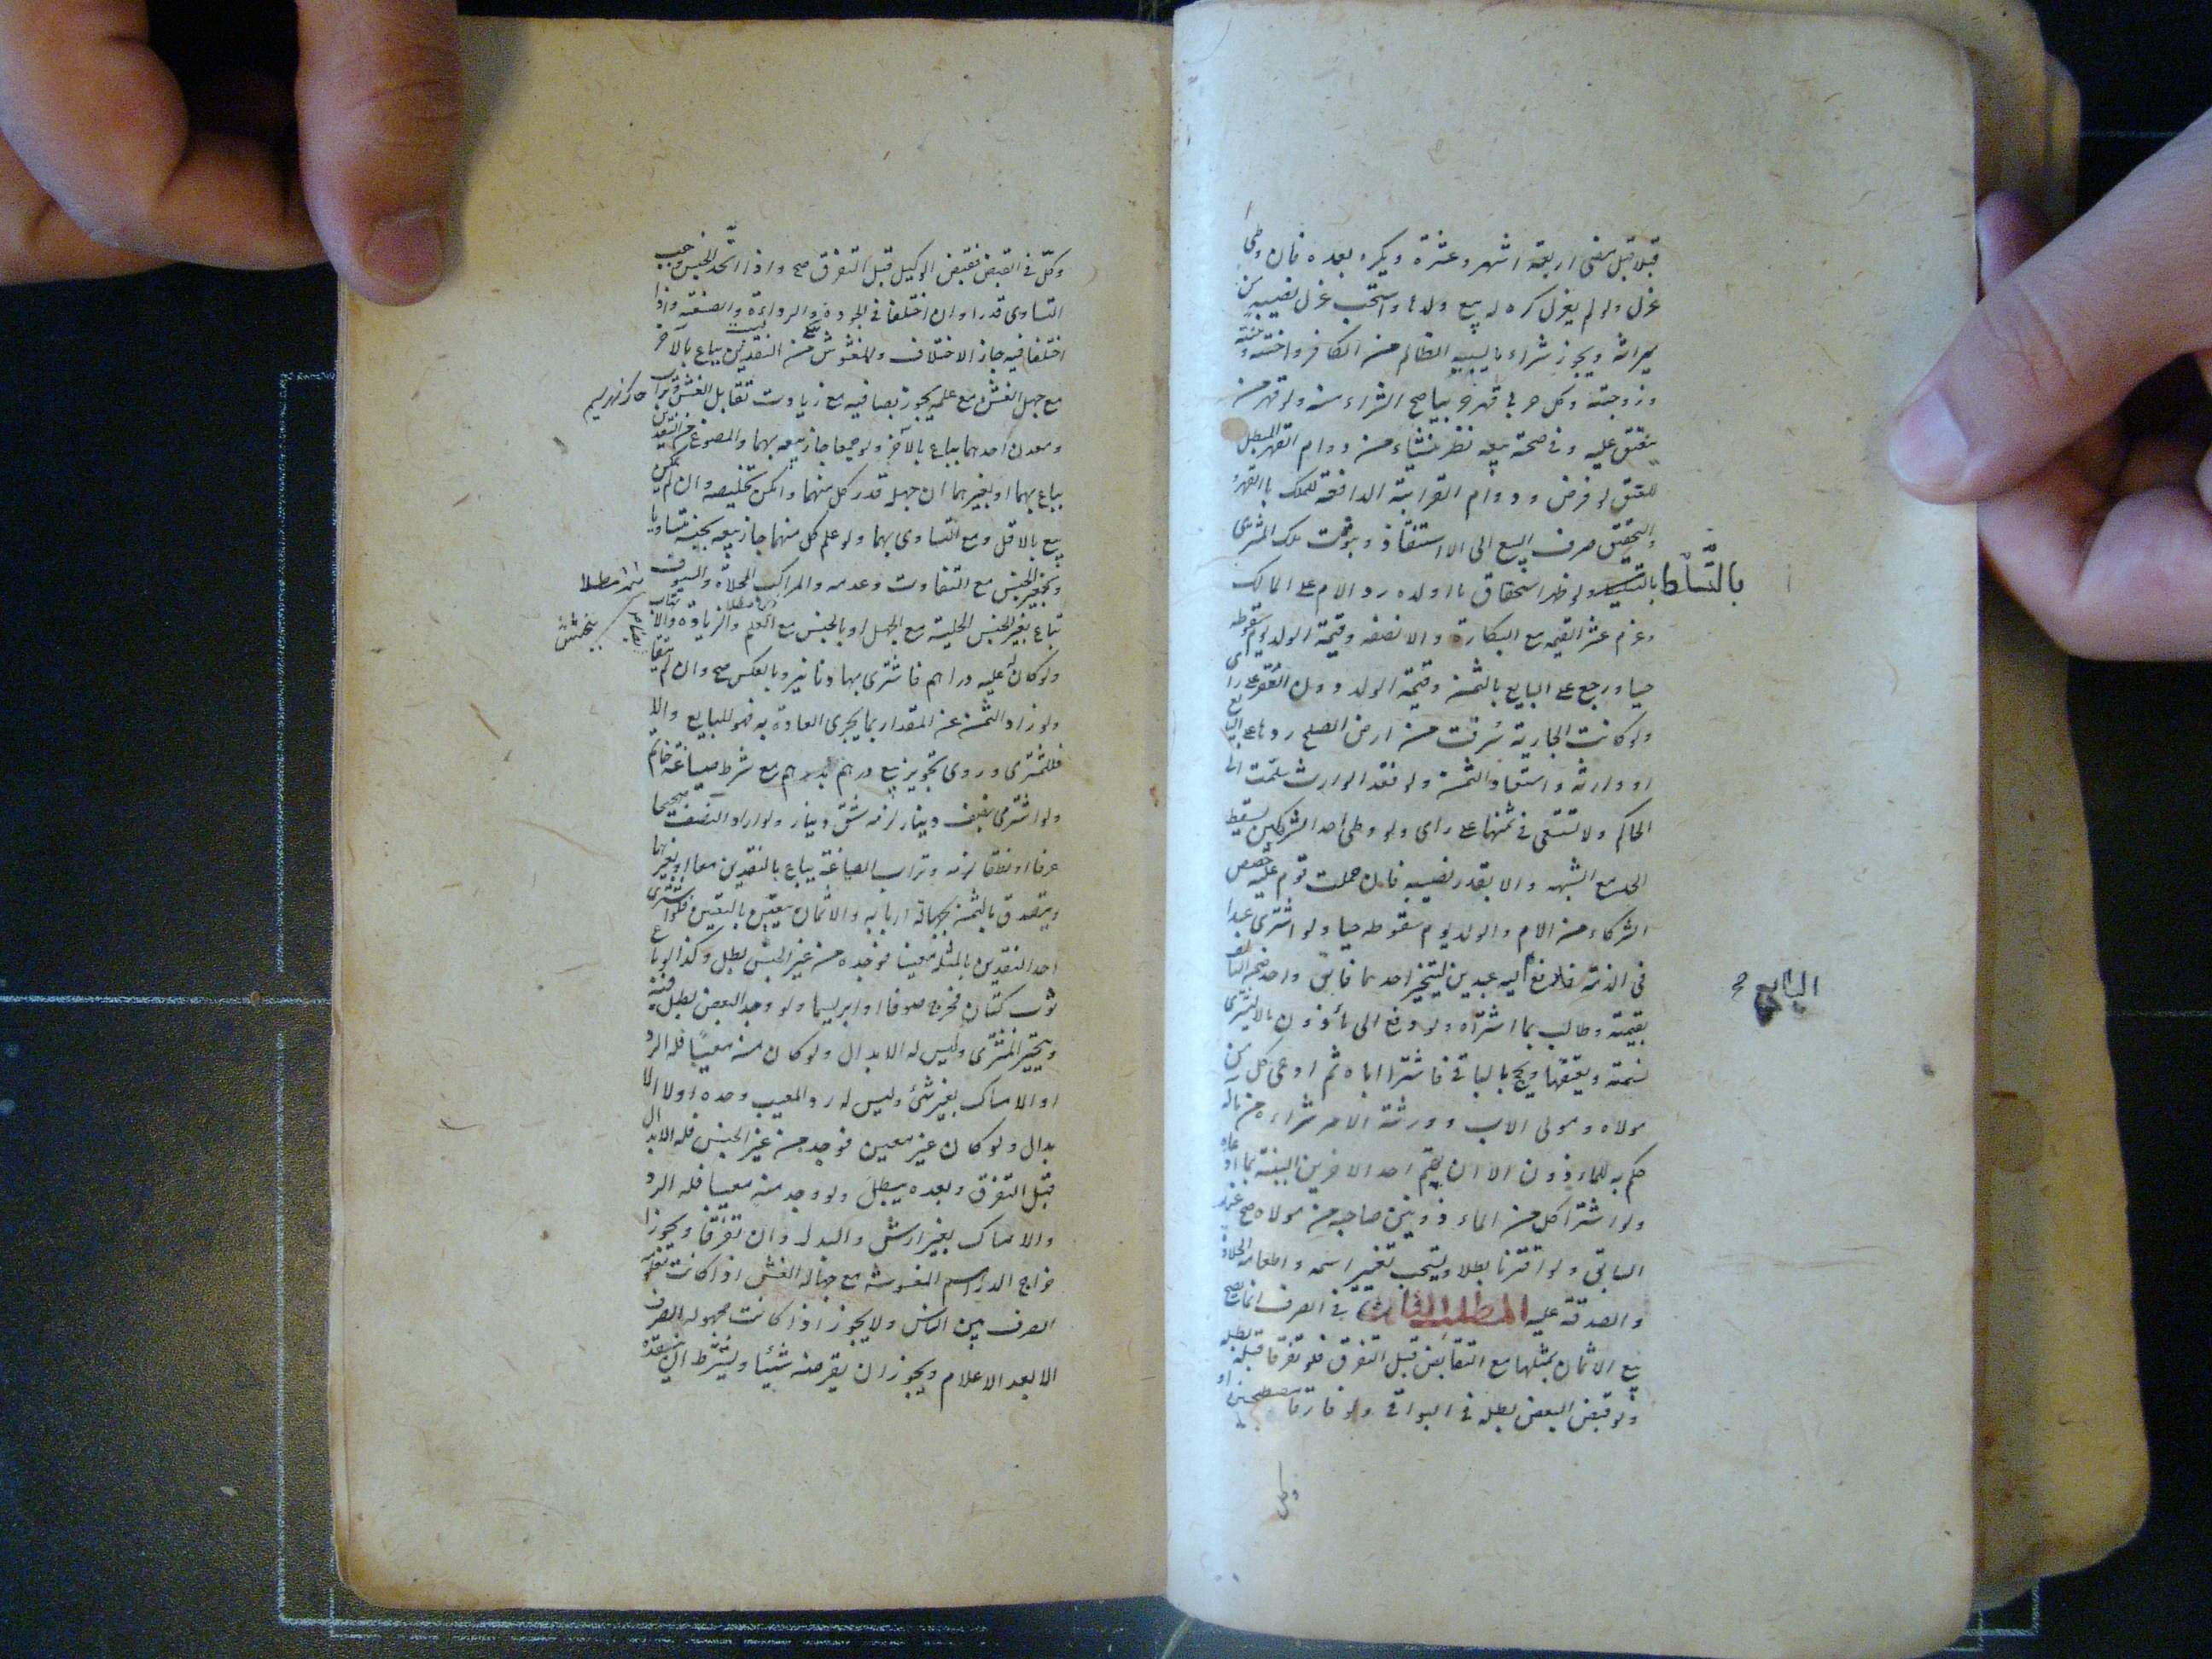 قبلا قبل مضى اربعة اشهر وعشرة ويكره بعده فان وطى
عزل ولو لم يعزل كره له بيع ولدها واستحب عزل نصيب من
ميراثه ويجوز شراء ما يسبيه الظالم من الكافر واخته وبنته
وزوجته وكل حربى قهر حربيا صح الشراء منه ولو قهر من
ينعتق عليه وفى صحة بيعه نظر ينشاء من دوام القهر المبطل
للعتق لو فرض ودوام القرابة الدافعة للملك بالقهر
والتحقيق صرف البيع الى الاستنقاذ وثبوت ملك المشترى
بالتسلط
ولو ظهر استحقاق ما اولده رد الام على المالك
وغرم عشر القيمة مع البكارة والا نصفه وقيمة الولد يوم سقوطه
حيا ورجع على البايع بالثمن وقيمة الولد دون العقر على راى
ولو كانت الجارية سرقت من ارض الصلح ردها على البايع
او وارثه واستعاد الثمن ولو فقد الوارث سلمت الى
الحاكم ولا تستسعى فى ثمنها على راى ولو وطى احد الشريكين سقط
الحد مع الشبهة والا بقدر نصيبه فان حملت قوم عليه حصص
الشركاء من الام والولد يوم سقوطه حيا ولو اشترى عبدا
فى الذمة فدفع اليه عبدين ليتخير احدهما فابق واحد ضمن التالف
البايع
بقيمته وطالب بما اشتراه ولو دفع الى مأذون مالا ليشترى
نسمة ويعتقها ويحج بالباقى فاشترا اباه ثم ادعى كل من
مولاه ومولى الاب وورثة الامر شراءه من ماله
حكم به للماءذون الا ان يقيم احد الاخرين البينة بما ادعاه
ولو اشترا كل من الماءذونين صاحبه من مولاه صح عقد
السابق ولو اقترنا بطلا ويستحب تغيير اسمه واطعامه الحلاوة
والصدقة عليه المطلب الثالث فى الصرف انما يصح
بيع الاثمان بمثلها مع التقابض قبل التفرق فلو تفرقا قبله بطل
ولو قبض البعض بطل فى البواقى ولو فارقا مصطحبين او
وكل
وكل فى القبض فقبض الوكيل قبل التفرق صح واذا اتحد الجنس وجب
التساوى قدرا وان اختلفا فى الجودة والرداءة والصنعة واذا
اختلفا فيه جاز الاختلاف والمغشوش من النقدين يباع بالآخر
مع جهل الغش ومع علمه يجوز بصافيه مع زيادت تقابل الغش وتراب
ومعدن احدهما يباع بالآخر ولو جمعا جاز بيعه بهما والمصوغ من النقدين
يباع بهما او بغيرهما ان جهل قدر كل منهما وامكن تخليصه وان لم يمكن
بيع بالاقل ومع التساوى بهما ولو علم كل منهما جاز بيعه بجنسه متساويا
وبغير الجنس مع التفاوت وعدمه والمراكب المحلاة والسيوف
تباع بغير الجنس الحلية مع الجهل او بالجنس مع العلم والزيادة والاتهاب
ولو كان له عليه دراهم فاشترى بها دنانير وبالعكس صح وان لم يتقابضا
ولو زاد الثمن عن المقدار بما يجرى العادة به فهو للبايع والا
فللمشترى وروى تجويز بيع درهم بدرهم مع شرط صياغة خاتم
ولو اشترى بنصف دينار لزمه شق دينار ولو اراد النصف صحيحا
عرفا او نطقا لزمه وتراب الصياغة يباع بالنقدين معا او بغيرهما
ويتصدق بالثمن لجهالة اربابه والاثمان يتعين بالتعيين فلو اشترى
احد النقدين بالمثل معينا فوجده من غير الجنس بطل وكذا لو باع
ثوب كتان فخرج صوفا او ابريسما ولو وجد البعض بطل فيه
ويتخير المشترى وليس له الابدال ولو كان منه معيبا فله الرد
او الامساك بغير شىء وليس له رد المعيب وحده ولا الا
بدال ولو كان غير معين فوجد من غير الجنس فله الابدال
قبل التفرق وبعده يبطل ولو وجد منه معيبا فله الرد
والامساك بغير ارش والبدل وان تفرقا ويجوز ا
خراج الدراهم المغشوشة مع جهالة الغش اذا كانت معلومة
الصرف بين الناس ولا يجوز اذا كانت مجهولة الصرف
الا بعد الاعلام ويجوز ان يقرضه شيئا ويشترط ان ينقده